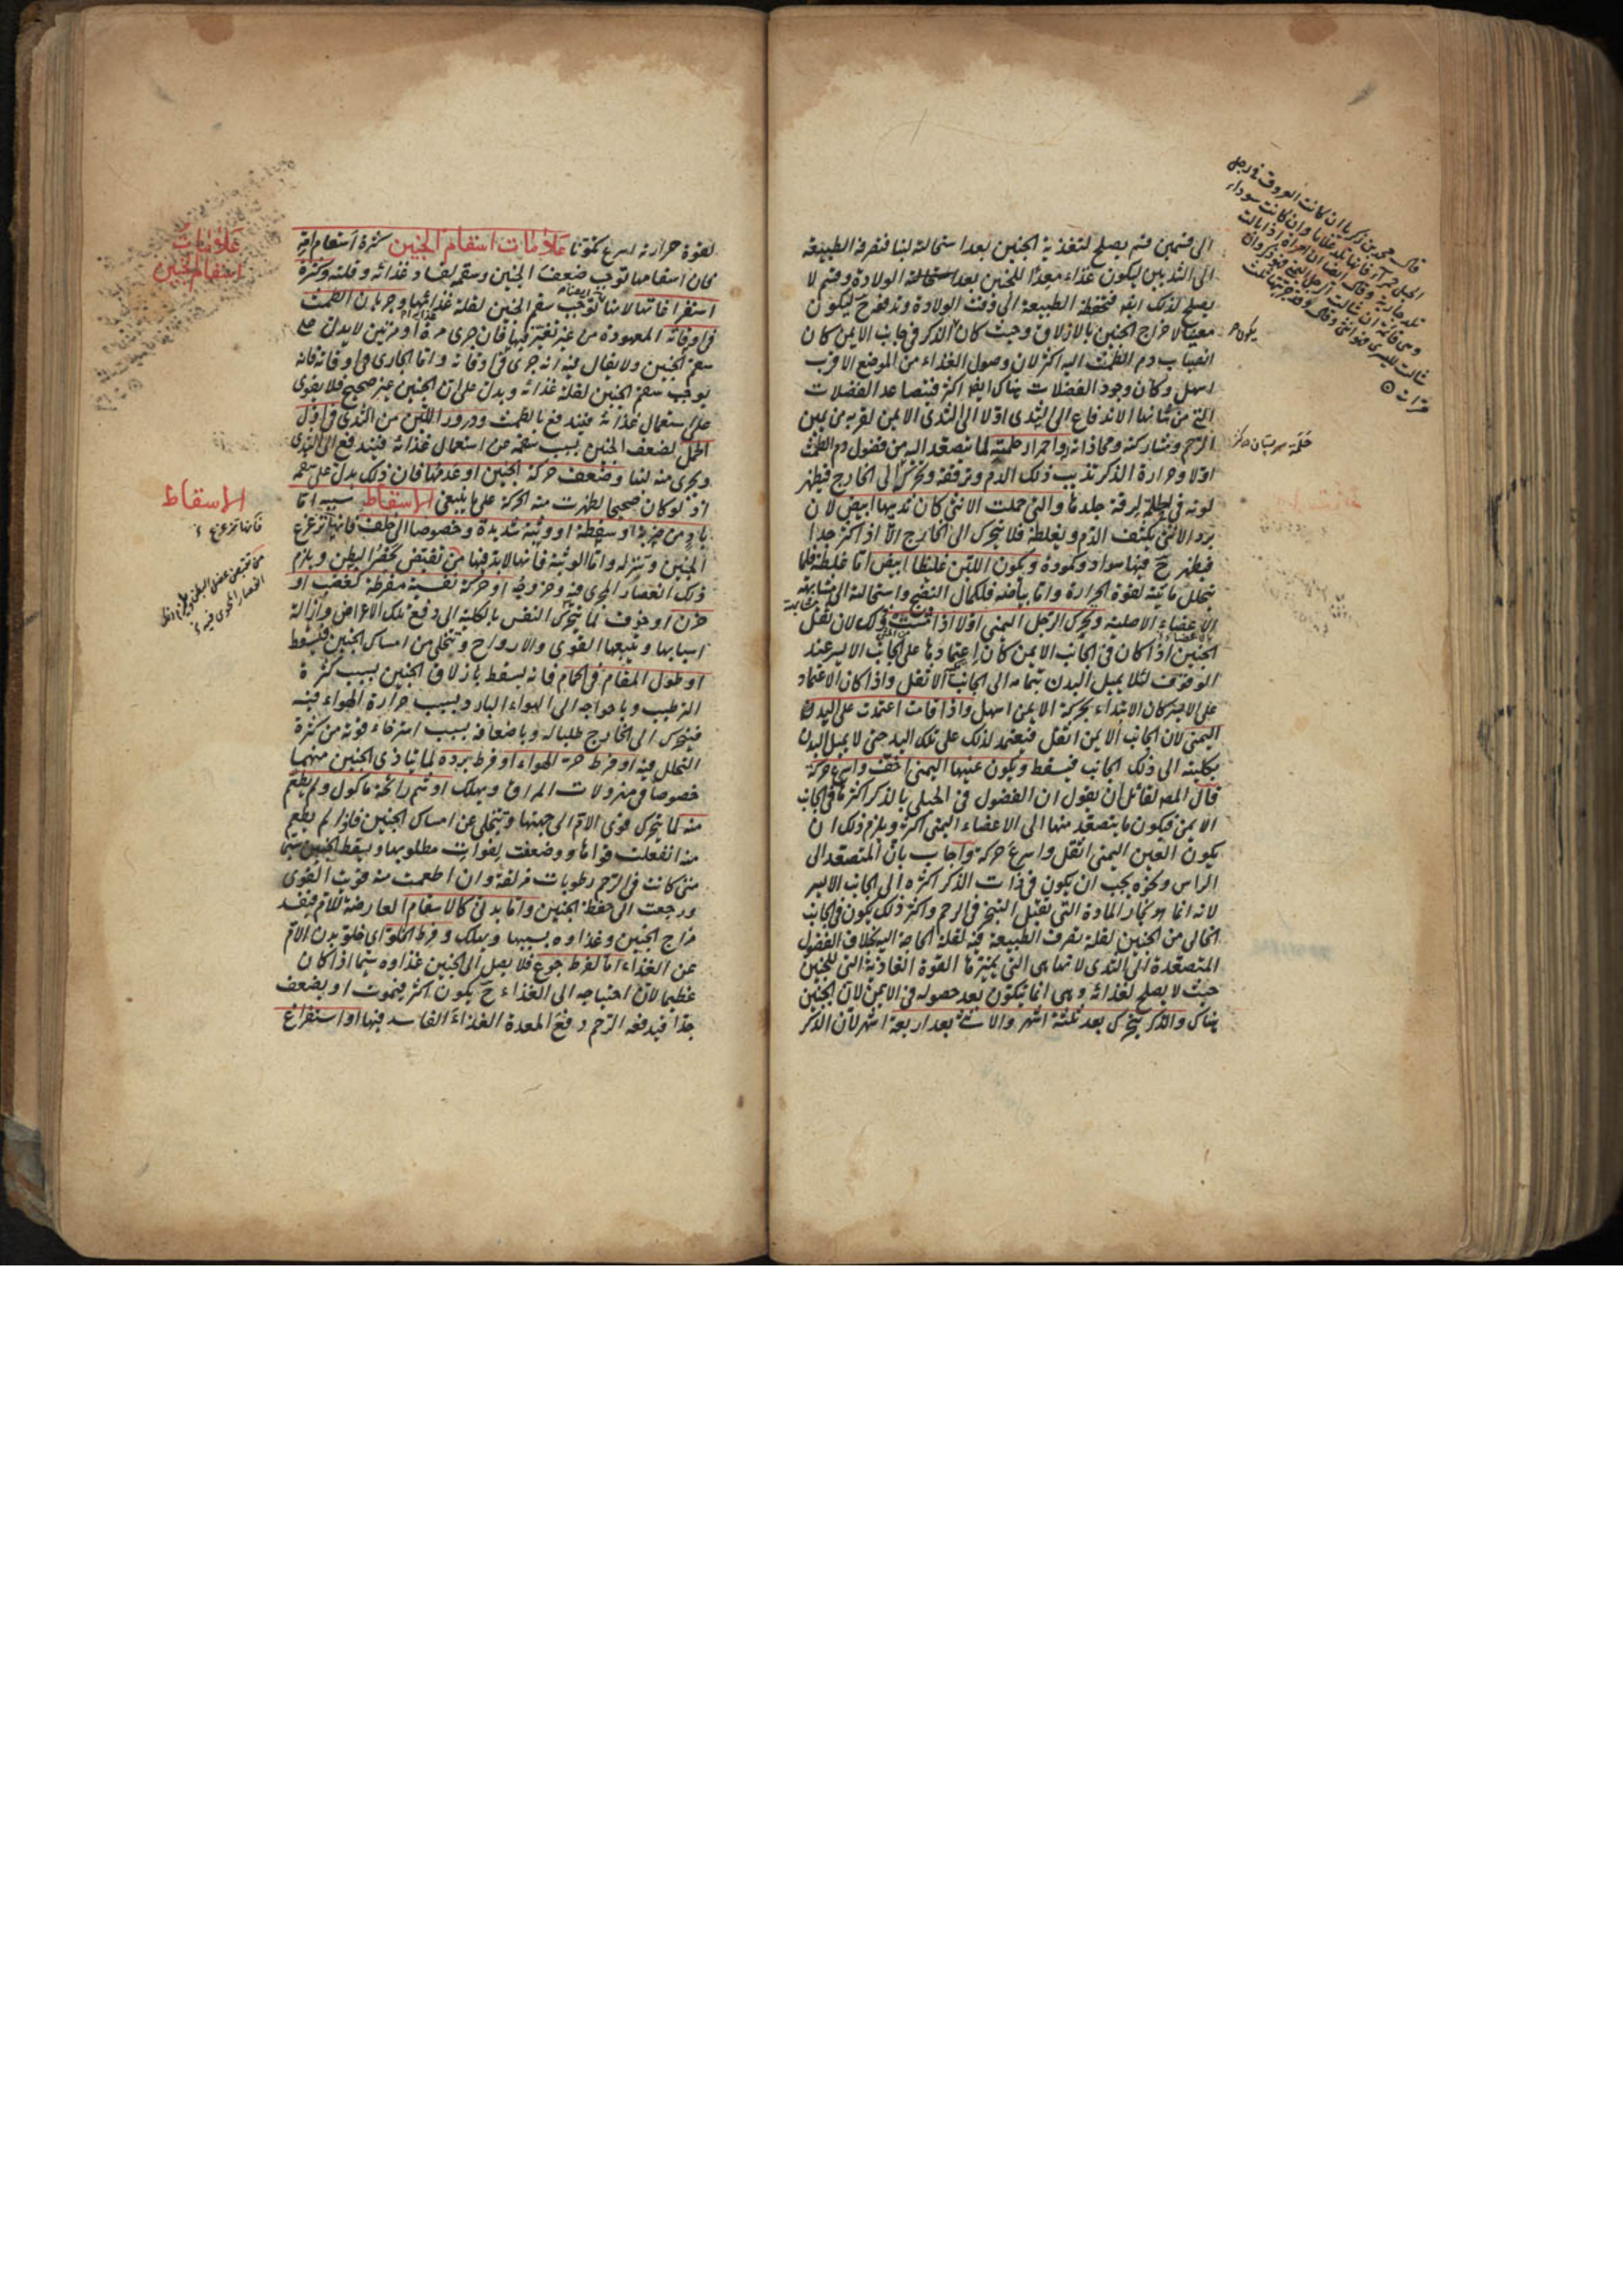 الى قسمين قسم يصلح لتغذية الجنين بعد استحالته لبنا فتصرفه الطبيعة
الى الثديين ليكون غذاء معدّا للجنين بعد الولادة وقسم لا
يصلح لذلك ايضا فتحفظه الطبيعة الى وقت الولادة وتدفعه ح ليكون
معينا لاخراج الجنين بالازلاق وحيث كان الذكر فى جانب الايمن كان
انصباب دم الطمث اليه اكثر لان وصول الغذاء من الموضع الاقرب
اسهل وكان وجود الفضلات هناك ايضا اكثر فيتصاعد الفضلات
التى من شانها الاندفاع الى الثدى اولا الى الثدى الايمن لقربه من يمين
الرحم ومشاركته ومحاذاته واحمرار حلمته لما يتصعد اليه من فضول دم الطمث
اولا وحرارة الذكر تذيب ذلك الدم وترققه وتحركه الى الخارج فيظهر
لونه فى الحلمة لرقة جلدها والتى حملت الانثى كان ثديها ابيض لان
برد الانثى يكثف الدم ويغلظه فلا يتحرك الى الخارج الا اذا كثر جدا
فيظهر ح فيها سواد وكمودة ويكون اللبن غليظا ابيض اما غلظه فلما
يتحلل مائيته لقوة الحرارة واما بياضه فلكمال النضج واستحالته الى مشابهة
الاعضاء الاصلية وتحرك الرجل اليمنى اولا اذا مشت وذلك لان ثقل
الجنين اذا كان فى الجانب الايمن كان اعتمادها على الجانب الايسر عند
الوقوف لئلا يميل البدن بتمامه الى الجانب الاثقل واذا كان الاعتماد
على الايسر كان الابتداء بحركة الايمن اسهل واذا قامت اعتمدت على اليد
اليمنى لان الجانب الايمن اثقل فيعتمد لذلك على تلك اليد حتى لا يميل البدن
بكليته الى ذلك الجانب فيسقط ويكون عينها اليمنى اخف واسرع حركة
قال المص لقائل ان يقول ان الفضول فى الحبلى بالذكر اكثرها فى الجانب
الايمن فيكون ما يتصعد منها الى الاعضاء اليمنى اكثر ويلزم ذلك ان
يكون العين اليمنى اثقل واسرع حركة واجاب بان المتصعد الى
الراس ونحوه يجب ان يكون فى ذات الذكر اكثره الى الجانب الايسر
لانه انما هو بخار المادة التى تقبل التبخر فى الرحم واكثر ذلك يكون فى الجانب
الخالى من الجنين لقلة تصرف الطبيعة فيه لقلة الحاجة اليه بخلاف الفضول
المتصعدة الى الثدى لانها هى التى يميزها القوة الغاذية التى للجنين
حيث لا يصلح لغذائه وهى انما تكون بعد حصوله فى الايمن لان الجنين
هناك والذكر يتحرك بعد ثلثة اشهر والانثى بعد اربعة اشهر لان الذكر
لقوة حرارته اسرع تكونا علامات اسقام الجنين كثرة اسقام امه
فان اسقامها توجب ضعف الجنين وسقمه لفساد غذائه وقلته وكثرة
استفراغاتها لانها توجب سقم الجنين لقلة غذائها وجريان الطمث
فى اوقاته المعهودة من غير تغير فيها فان جرى مرة او مرتين لا يدل على
سقم الجنين ولا يقال فيه انه جرى فى اوقاته واما الجارى فى اوقاته فانه
يوجب سقم الجنين لقلة غذائه ويدل على ان الجنين غير صحيح فلا يقوى
على استعمال غذائه فيندفع بالطمث ودرور اللبن من الثدى فى اول
الحمل لضعف الجنين بسبب سقمه عن استعمال غذائه فيندفع الى الثدى
ويجرى منه لبنا وضعف حركة الجنين او عدمها فان ذلك يدل على سقمه
اذ لو كان صحيحا لظهرت منه الحركة على ما ينبغى الاسقاط سببه اما
باد من ضربة او سقطة او وثبة شديدة وخصوصا الى خلف فانها تزعزع
الجنين وتنزله واما الوثبة فانها لابد فيها من تقبض عضل البطن ويلزم
ذلك انعصار الحوى فيه وخروجه او حركة نفسية مفرطة كغضب او
حزن او خوف لما يتحرك النفس بالكلية الى دفع تلك الاعراض وازالة
اسبابها ويتبعها القوى والارواح ويتخلى من امساك الجنين فيسقط
او طول المقام فى الحمام فانه يسقط بازلاق الجنين بسبب كثرة
الترطيب وباحواجه الى الهواء البارد بسبب حرارة الهواء فيه
فيتحرك الى الخارج طلبا له وباضعافه بسبب استرخاء قوته من كثرة
التحلل فيه او فرط حر الهواء او فرط برده لما يتاذى الجنين منهما
خصوصا فى مهزولات المراق ويهلك او شم رائحة ماكول ولم يطعم
منه لما يتحرك قوى الام الى جهتها ويتخلى عن امساك الجنين فاذا لم يطعم
منه انفعلت قواها وضعفت لفوات مطلوبها ويسقط الجنين سيما
متى كانت فى الرحم رطوبات مزلقة وان اطعمت منه قويت القوى
ورجعت الى حفظ الجنين واما بدنى كالاسقام العارضة للام فيفسد
مزاج الجنين وغذاوه بسببها ويهلك وفرط الخلو اى خلو بدن الام
عن الغذاء اما لفرط جوع فلا يصل الى الجنين غذاوه سيما اذا كان
عظيما لان احتياجه الى الغذاء ح يكون اكثر فيموت او يضعف
جدا فيدفعه الرحم دفع المعدة الغذاء الفاسد فيها او استفراغ
علامات
اسقام الجنين
الاسقاط
فانها تزعزع